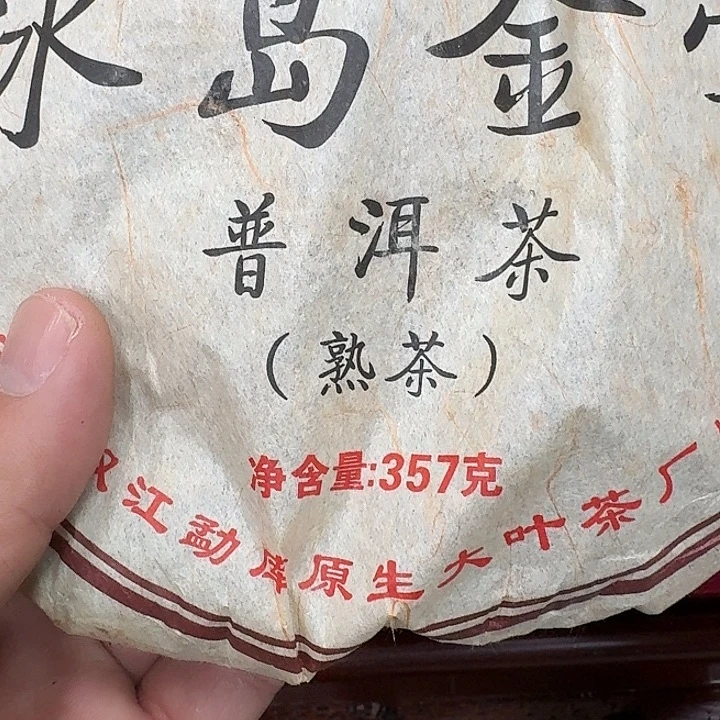 岛金
普洱茶
(熟茶)
净含量:357克
江勐库原生大叶茶厂